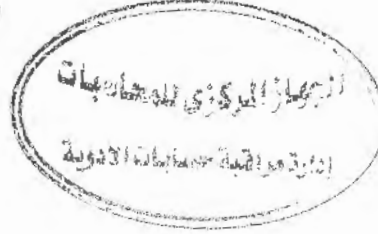 الجهاز المركزي للمحاسبات
إدارة مراقبة حسابات الأدوية